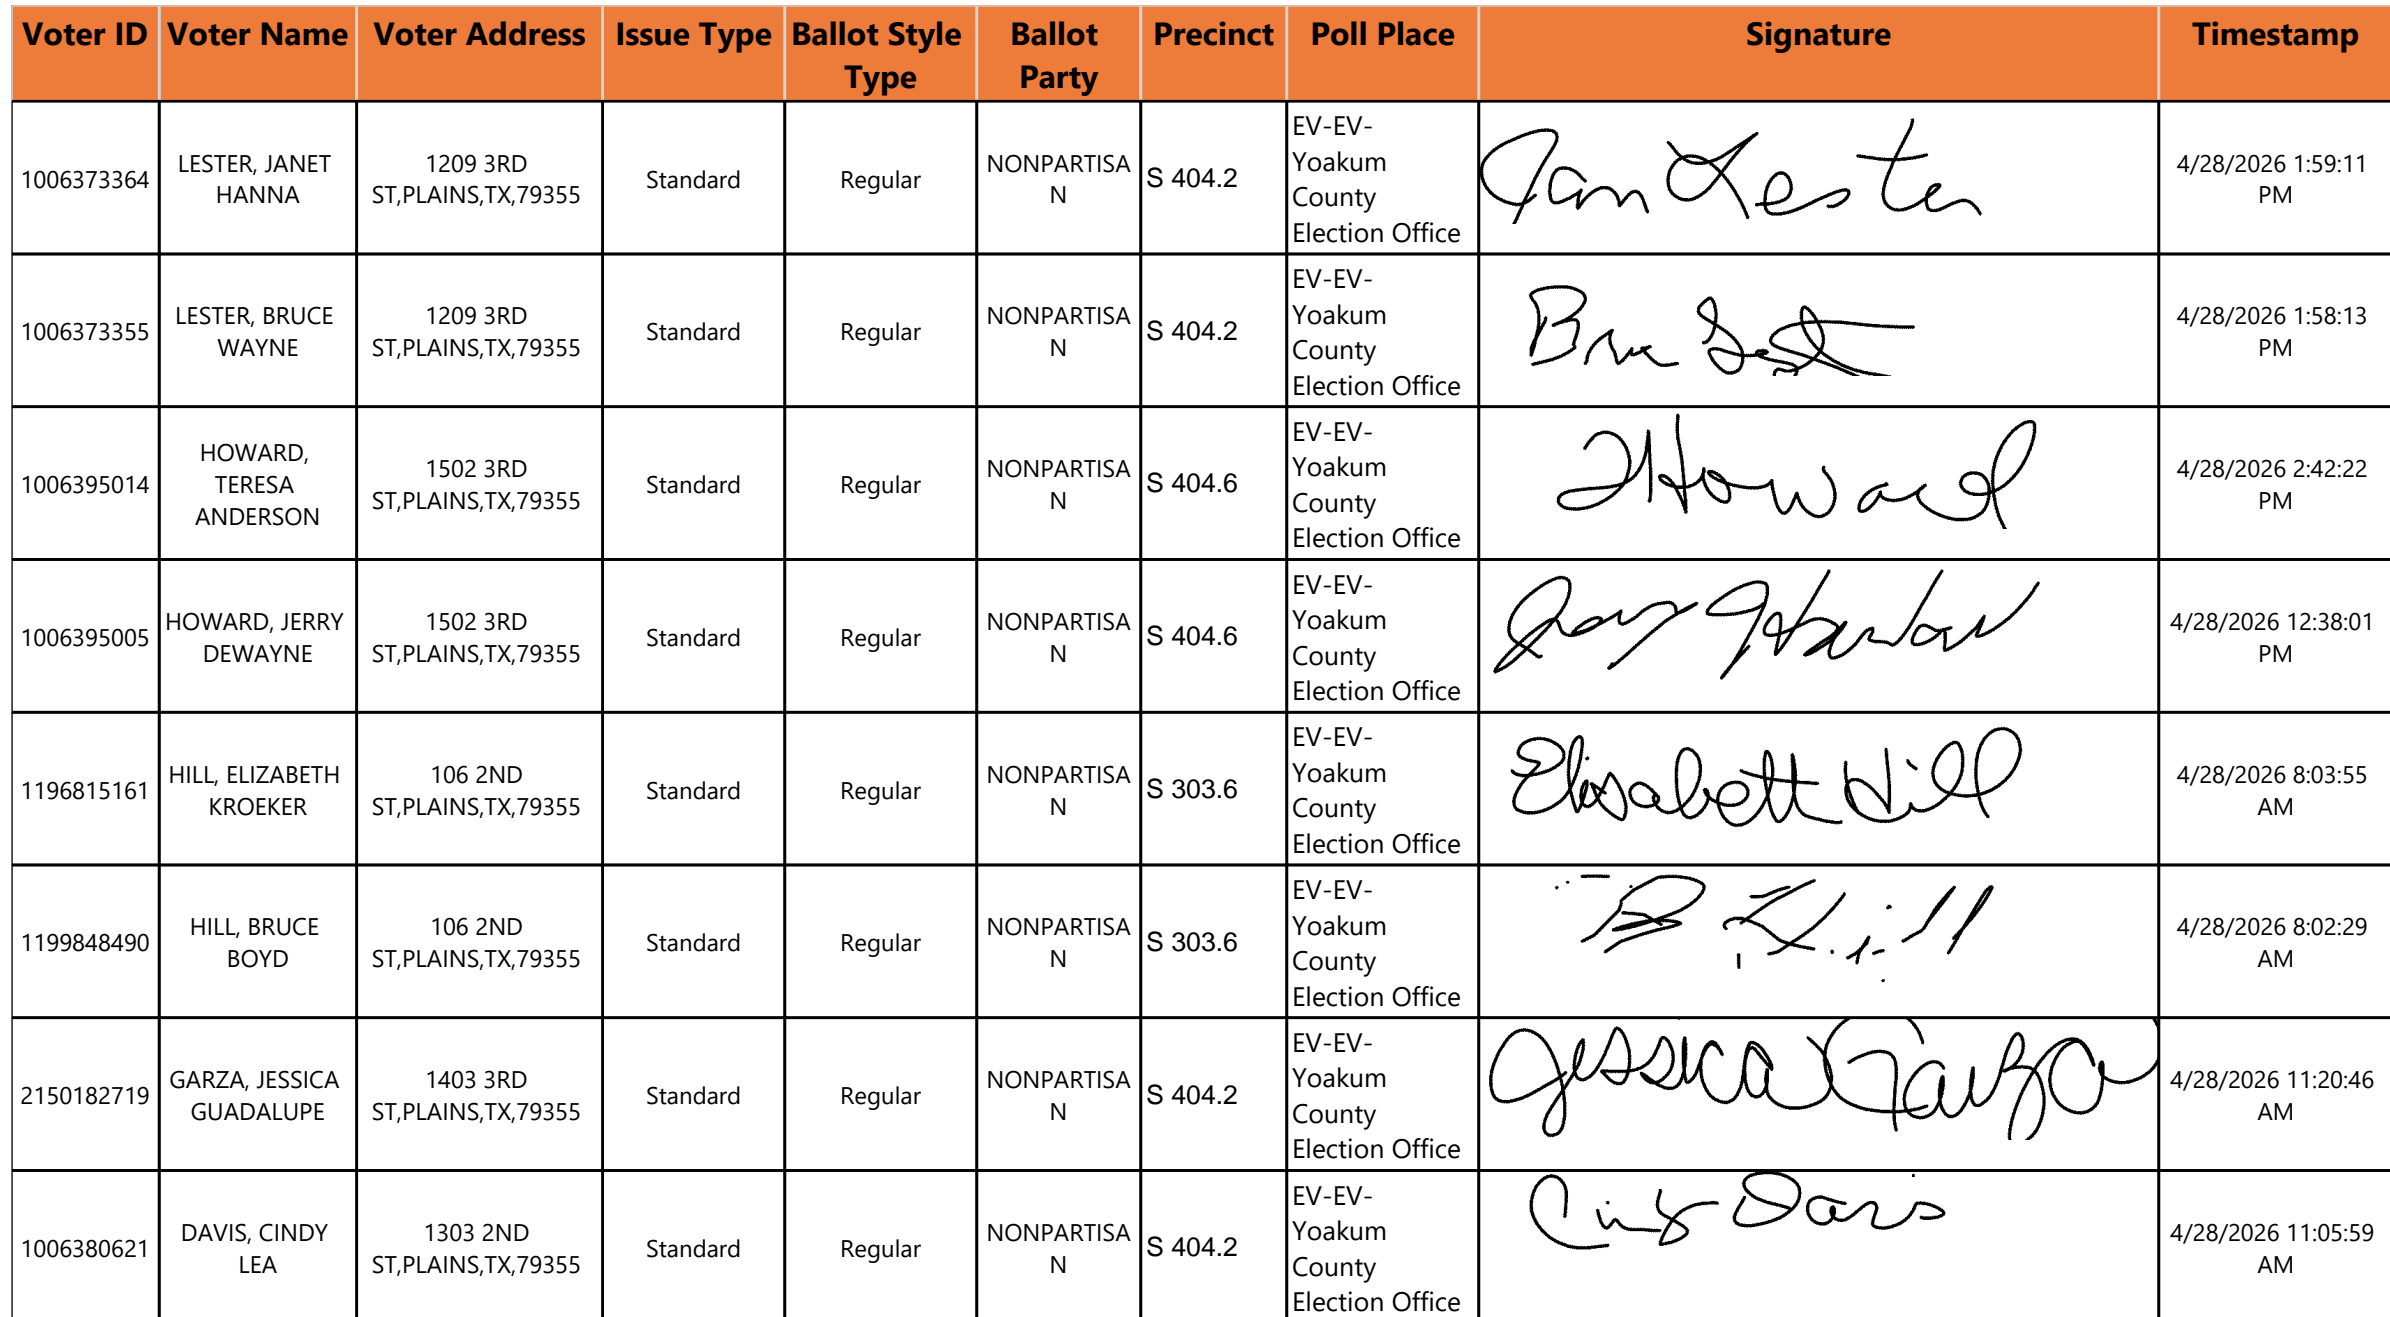 Voter ID Voter Name Voter Address Issue Type Ballot Style Type Ballot Party Precinct Poll Place Signature Timestamp
1006373364 LESTER, JANET HANNA 1209 3RD ST,PLAINS,TX,79355 Standard Regular NONPARTISAN S 404.2 EV-EV-Yoakum County Election Office Jan Lester 4/28/2026 1:59:11 PM
1006373355 LESTER, BRUCE WAYNE 1209 3RD ST,PLAINS,TX,79355 Standard Regular NONPARTISAN S 404.2 EV-EV-Yoakum County Election Office 4/28/2026 1:58:13 PM
1006395014 HOWARD, TERESA ANDERSON 1502 3RD ST,PLAINS,TX,79355 Standard Regular NONPARTISAN S 404.6 EV-EV-Yoakum County Election Office THoward 4/28/2026 2:42:22 PM
1006395005 HOWARD, JERRY DEWAYNE 1502 3RD ST,PLAINS,TX,79355 Standard Regular NONPARTISAN S 404.6 EV-EV-Yoakum County Election Office 4/28/2026 12:38:01 PM
1196815161 HILL, ELIZABETH KROEKER 106 2ND ST,PLAINS,TX,79355 Standard Regular NONPARTISAN S 303.6 EV-EV-Yoakum County Election Office Elizabeth Hill 4/28/2026 8:03:55 AM
1199848490 HILL, BRUCE BOYD 106 2ND ST,PLAINS,TX,79355 Standard Regular NONPARTISAN S 303.6 EV-EV-Yoakum County Election Office B Hill 4/28/2026 8:02:29 AM
2150182719 GARZA, JESSICA GUADALUPE 1403 3RD ST,PLAINS,TX,79355 Standard Regular NONPARTISAN S 404.2 EV-EV-Yoakum County Election Office Jessica Garza 4/28/2026 11:20:46 AM
1006380621 DAVIS, CINDY LEA 1303 2ND ST,PLAINS,TX,79355 Standard Regular NONPARTISAN S 404.2 EV-EV-Yoakum County Election Office Cindy Davis 4/28/2026 11:05:59 AM